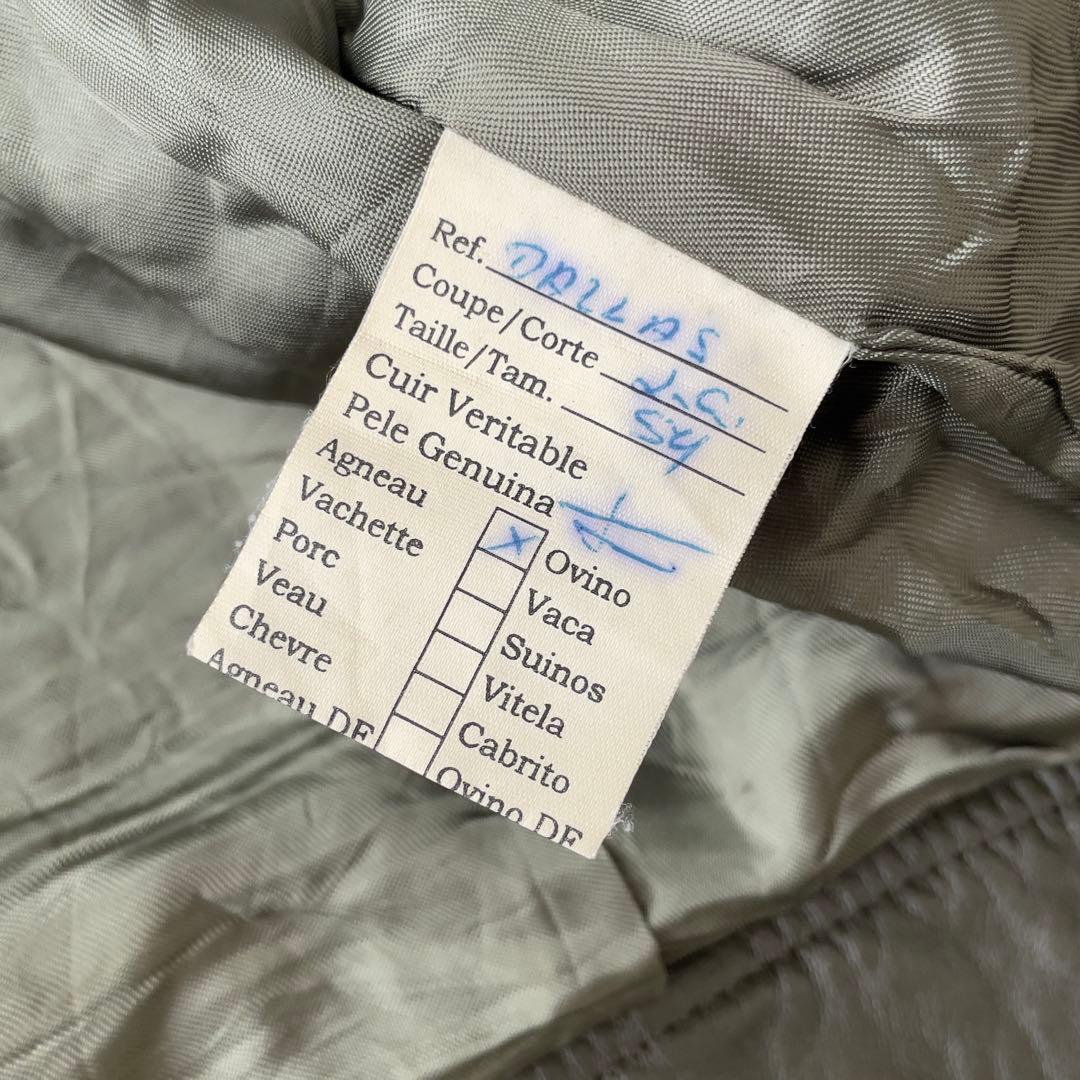 Ref. DALLAS
Coupe/Corte
Taille/Tam. 54
Cuir Veritable
Pele Genuina
Agneau X Ovino
Vachette Vaca
Porc Suinos
Veau Vitela
Chevre Cabrito
Agneau DE Ovino DE